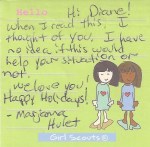 Hello
Hi Diane!
When I read this, I
thought of you. I have
no idea if this would
help your situation or
not.
We love you!
Happy Holidays!
- Marjanna
Hulet
Girl Scouts ®